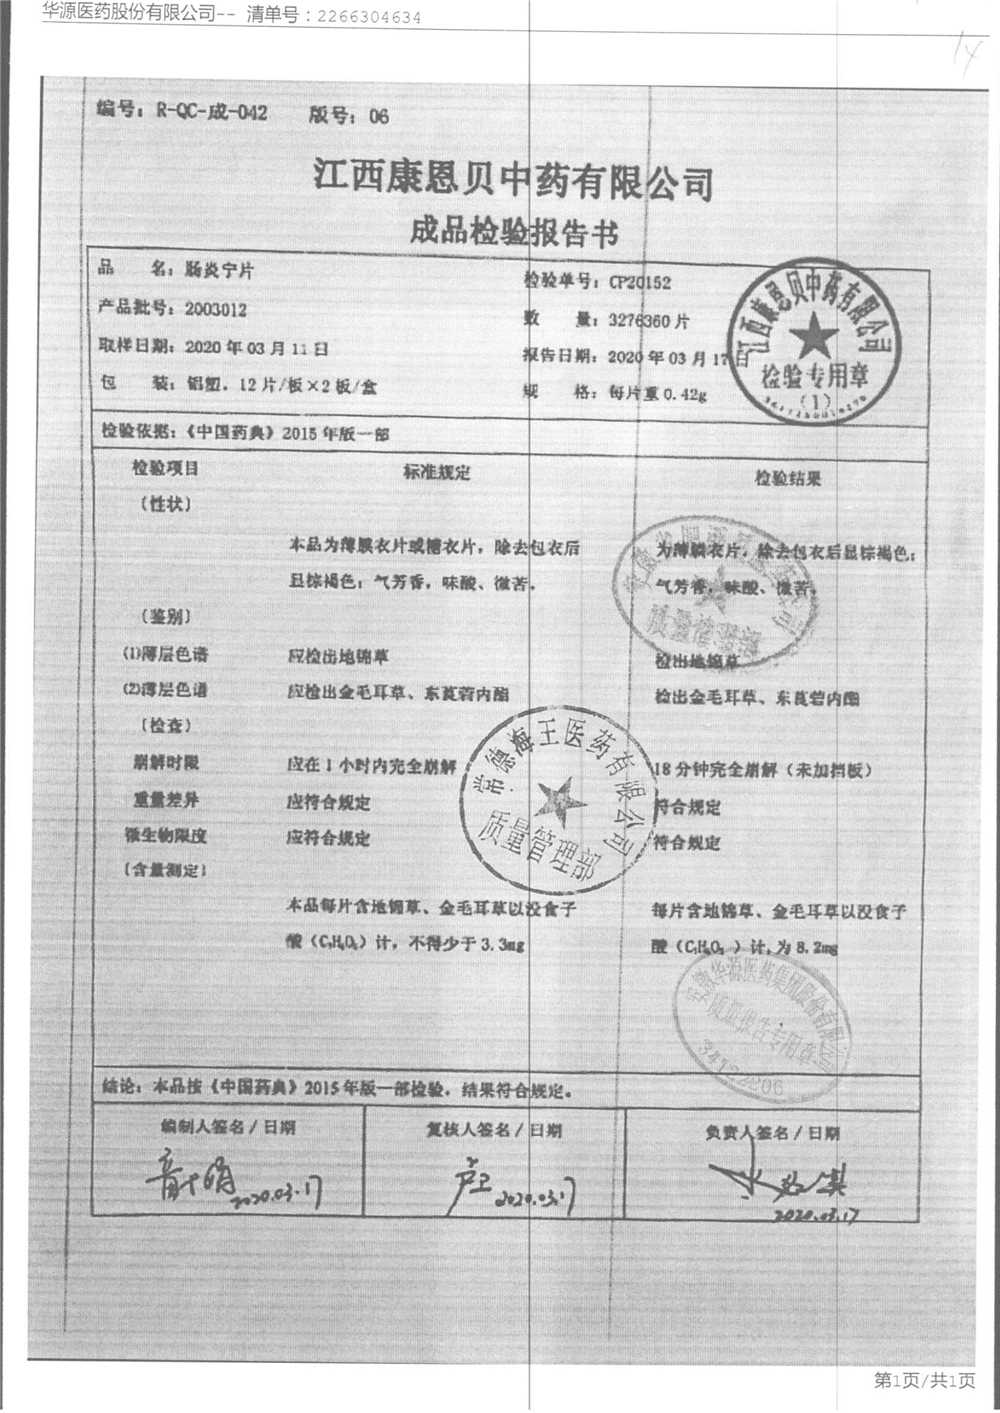 华源医药股份有限公司-- 清单号：2266304634
14
编号：R-QC-成-042 版号：06
江西康恩贝中药有限公司
成品检验报告书
品 名：肠炎宁片 检验单号：CP20152
产品批号：2003012 数 量：3276360 片
取样日期：2020 年 03 月 11 日 报告日期：2020 年 03 月 17 日
包 装：铝塑，12 片/板×2 板/盒 规 格：每片重 0.42g
江西康恩贝中药有限公司
检验专用章
（1）
检验依据：《中国药典》2015 年版一部
检验项目 标准规定 检验结果
〔性状〕
本品为薄膜衣片或糖衣片，除去包衣后 为薄膜衣片，除去包衣后显棕褐色；
显棕褐色；气芳香，味酸、微苦。 气芳香，味酸、微苦。
〔鉴别〕
⑴薄层色谱 应检出地锦草 检出地锦草
⑵薄层色谱 应检出金毛耳草、东莨菪内酯 检出金毛耳草、东莨菪内酯
〔检查〕
崩解时限 应在 1 小时内完全崩解 18 分钟完全崩解（未加挡板）
重量差异 应符合规定 符合规定
微生物限度 应符合规定 符合规定
常德海王医药有限公司
质量管理部
〔含量测定〕
本品每片含地锦草、金毛耳草以没食子 每片含地锦草、金毛耳草以没食子
酸（C₇H₆O₅）计，不得少于 3.3mg 酸（C₇H₆O₅）计，为 8.2mg
安徽华源医药集团股份有限公司
质量报告专用章
34122206
结论：本品按《中国药典》2015 年版一部检验，结果符合规定。
编制人签名/日期 复核人签名/日期 负责人签名/日期
2020.03.17 2020.03.17 2020.03.17
第1页/共1页